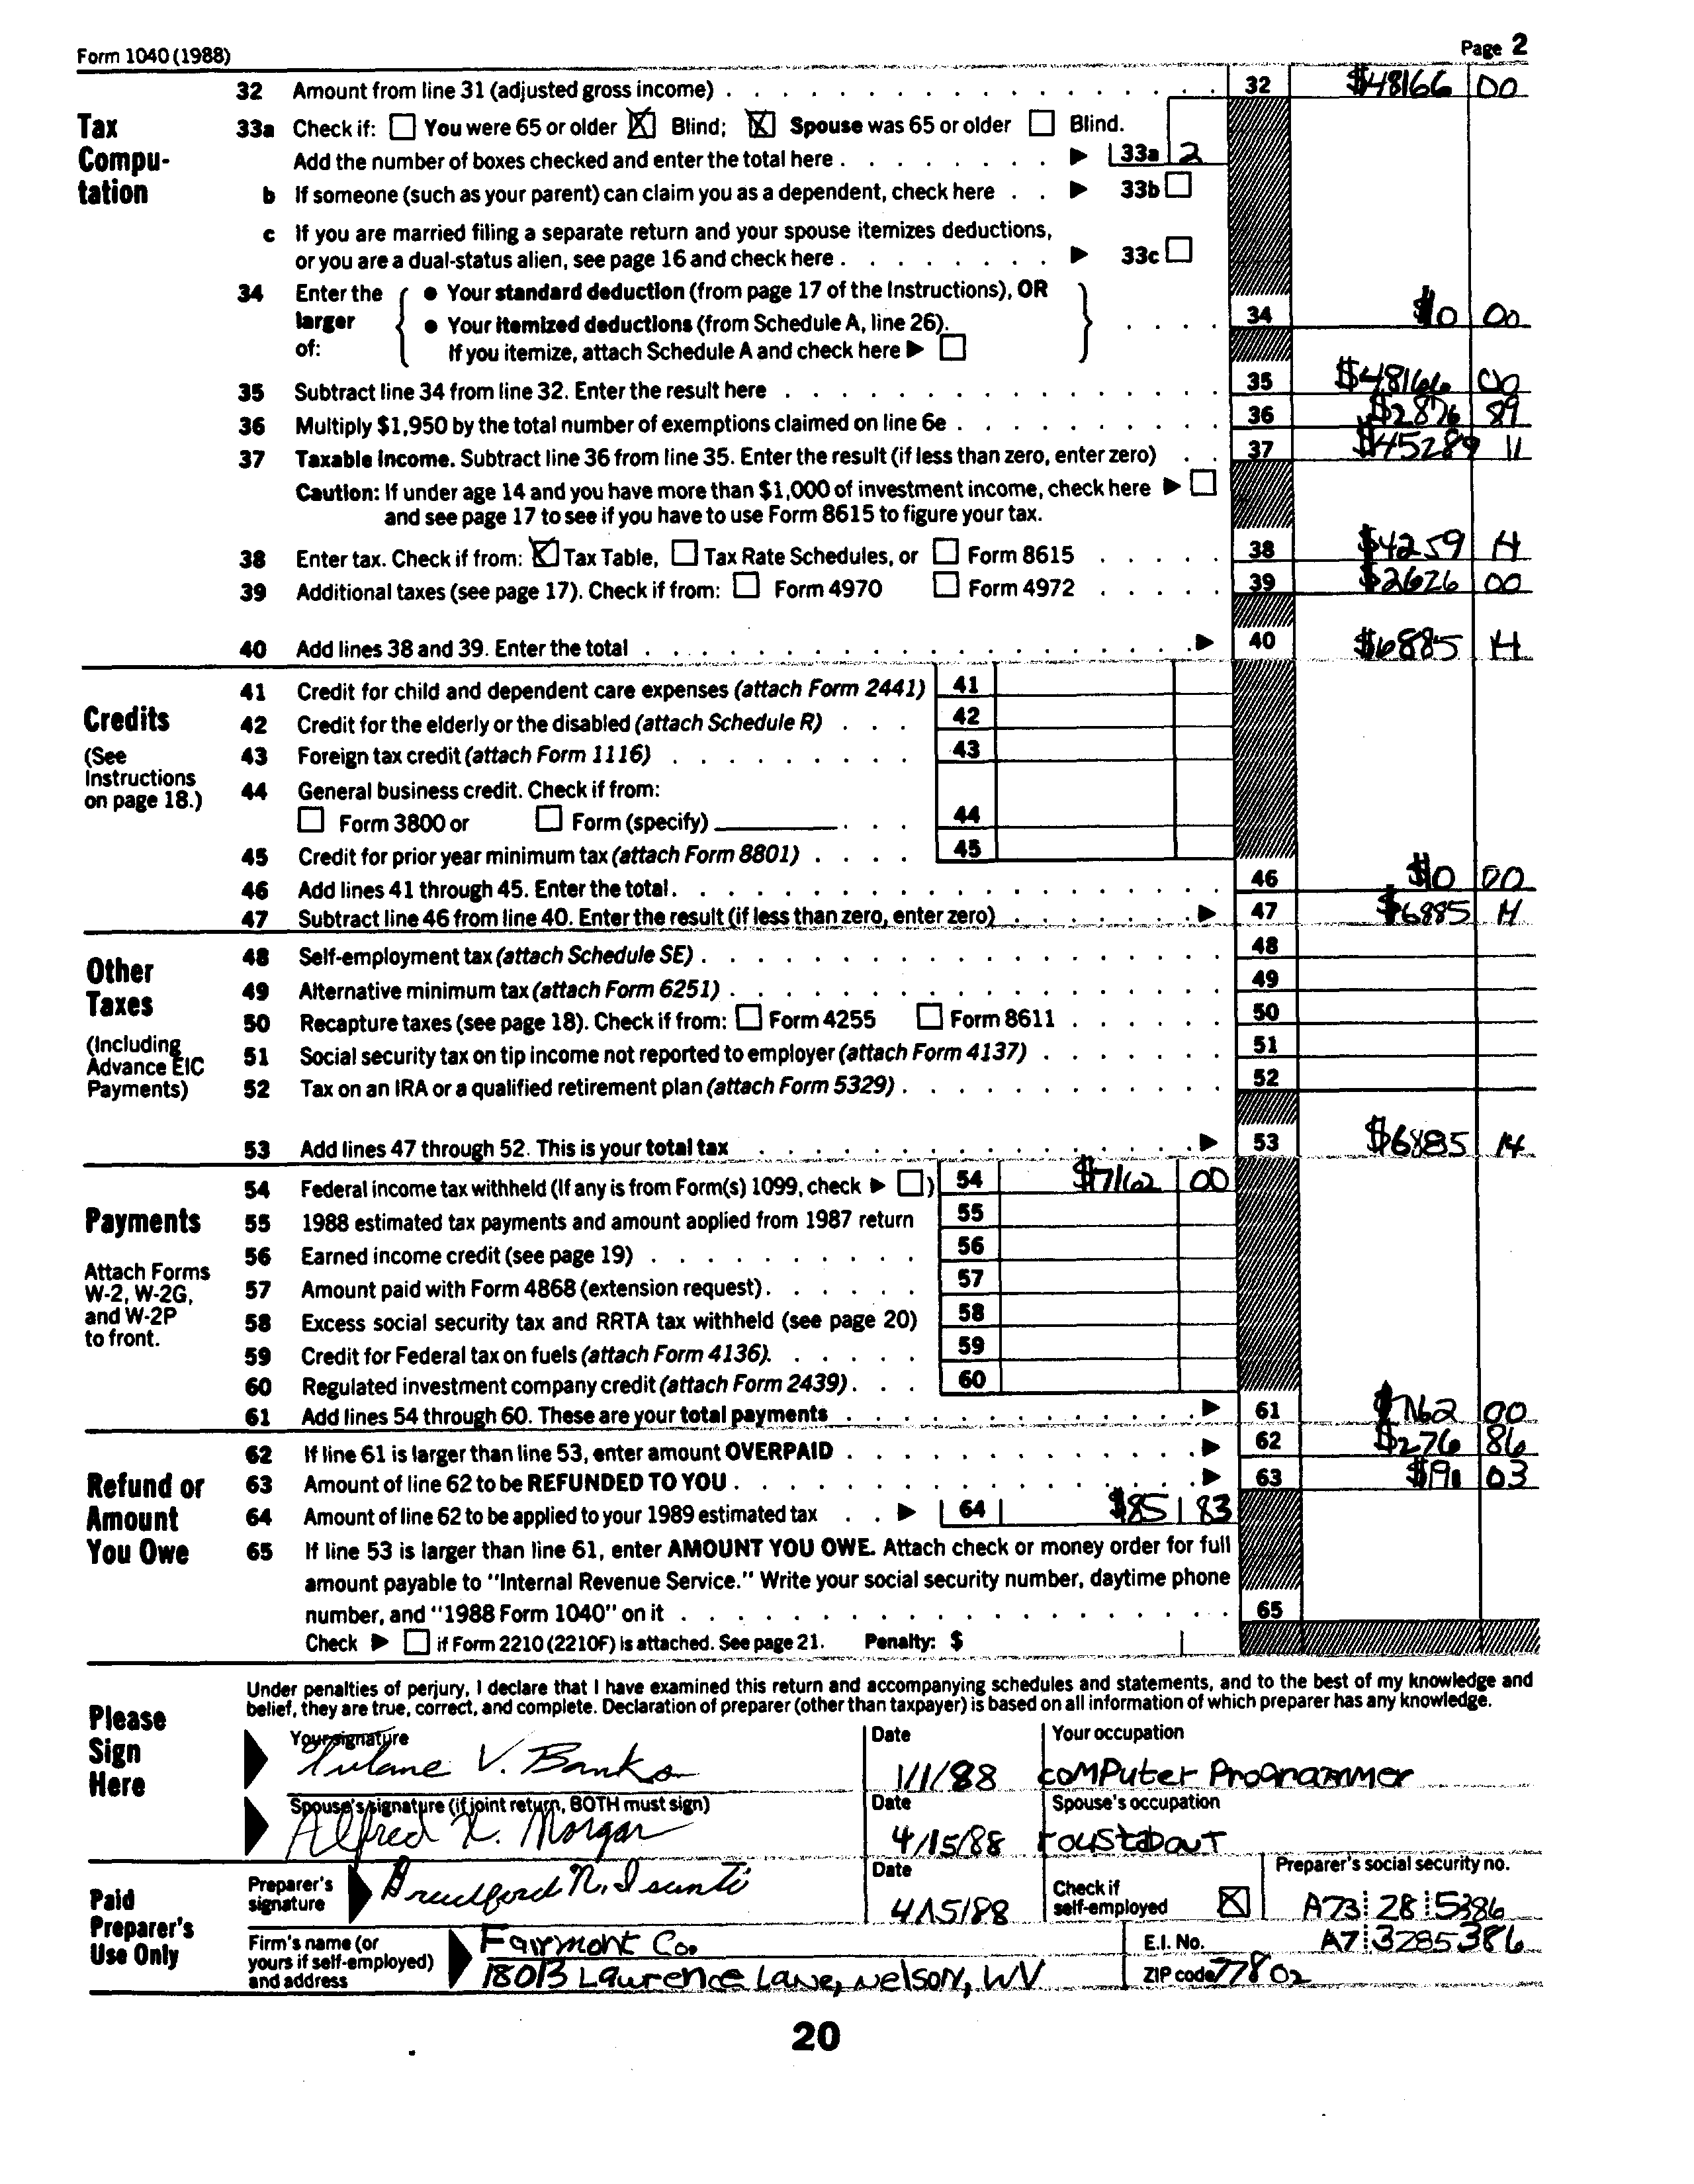 Form 1040 (1988) Page 2
Tax Compu-tation
32 Amount from line 31 (adjusted gross income) 32 $48166 00
33a Check if: You were 65 or older Blind; Spouse was 65 or older Blind.
Add the number of boxes checked and enter the total here 33a 2
b If someone (such as your parent) can claim you as a dependent, check here 33b
c If you are married filing a separate return and your spouse itemizes deductions,
or you are a dual-status alien, see page 16 and check here 33c
34 Enter the larger of: • Your standard deduction (from page 17 of the Instructions), OR
• Your itemized deductions (from Schedule A, line 26). 34 $0 00
If you itemize, attach Schedule A and check here
35 Subtract line 34 from line 32. Enter the result here 35 $48166 00
36 Multiply $1,950 by the total number of exemptions claimed on line 6e 36 $2876 89
37 Taxable Income. Subtract line 36 from line 35. Enter the result (if less than zero, enter zero) 37 $45289 11
Caution: If under age 14 and you have more than $1,000 of investment income, check here
and see page 17 to see if you have to use Form 8615 to figure your tax.
38 Enter tax. Check if from: Tax Table, Tax Rate Schedules, or Form 8615 38 $4259 14
39 Additional taxes (see page 17). Check if from: Form 4970 Form 4972 39 $2626 00
40 Add lines 38 and 39. Enter the total 40 $6885 14
Credits
(See Instructions on page 18.)
41 Credit for child and dependent care expenses (attach Form 2441) 41
42 Credit for the elderly or the disabled (attach Schedule R) 42
43 Foreign tax credit (attach Form 1116) 43
44 General business credit. Check if from:
Form 3800 or Form (specify) 44
45 Credit for prior year minimum tax (attach Form 8801) 45
46 Add lines 41 through 45. Enter the total. 46 $0 00
47 Subtract line 46 from line 40. Enter the result (if less than zero, enter zero) 47 $6885 14
Other Taxes
(Including Advance EIC Payments)
48 Self-employment tax (attach Schedule SE) 48
49 Alternative minimum tax (attach Form 6251) 49
50 Recapture taxes (see page 18). Check if from: Form 4255 Form 8611 50
51 Social security tax on tip income not reported to employer (attach Form 4137) 51
52 Tax on an IRA or a qualified retirement plan (attach Form 5329) 52
53 Add lines 47 through 52. This is your total tax 53 $6885 14
Payments
Attach Forms W-2, W-2G, and W-2P to front.
54 Federal income tax withheld (If any is from Form(s) 1099, check ) 54 $7162 00
55 1988 estimated tax payments and amount applied from 1987 return 55
56 Earned income credit (see page 19) 56
57 Amount paid with Form 4868 (extension request) 57
58 Excess social security tax and RRTA tax withheld (see page 20) 58
59 Credit for Federal tax on fuels (attach Form 4136) 59
60 Regulated investment company credit (attach Form 2439) 60
61 Add lines 54 through 60. These are your total payments 61 $7162 00
Refund or Amount You Owe
62 If line 61 is larger than line 53, enter amount OVERPAID 62 $276 86
63 Amount of line 62 to be REFUNDED TO YOU 63 $191 03
64 Amount of line 62 to be applied to your 1989 estimated tax 64 $85 83
65 If line 53 is larger than line 61, enter AMOUNT YOU OWE. Attach check or money order for full
amount payable to "Internal Revenue Service." Write your social security number, daytime phone
number, and "1988 Form 1040" on it 65
Check if Form 2210 (2210F) is attached. See page 21. Penalty: $
Please Sign Here
Under penalties of perjury, I declare that I have examined this return and accompanying schedules and statements, and to the best of my knowledge and
belief, they are true, correct, and complete. Declaration of preparer (other than taxpayer) is based on all information of which preparer has any knowledge.
Your signature Date Your occupation
Tulane V. Banks 1/1/88 computer Programmer
Spouse's signature (if joint return, BOTH must sign) Date Spouse's occupation
Alfred X. Morgan 4/15/88 roustabout
Paid Preparer's Use Only
Preparer's signature Bradford N. Isanti Date 4/15/88 Check if self-employed Preparer's social security no. A73 28 5386
Firm's name (or yours if self-employed) and address Fairmont Co. E.I. No. A7 3285386
18013 Lawrence Lane, Nelson, WV ZIP code 77802
20